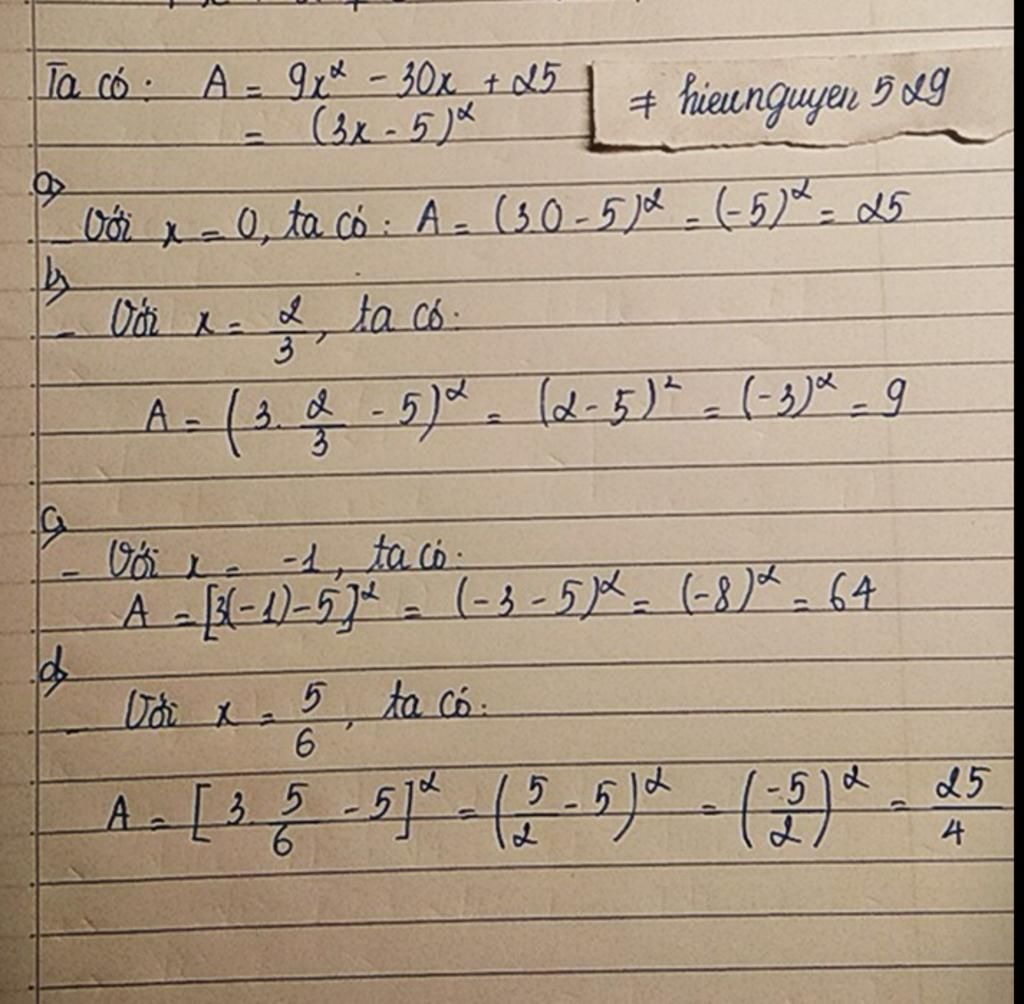 Ta có: A = 9x² - 30x + 25
= (3x - 5)²
# hieunguyen 529
a)
- Với x = 0, ta có: A = (3.0 - 5)² = (-5)² = 25
b)
- Với x = 2/3, ta có:
A = (3. 2/3 - 5)² = (2 - 5)² = (-3)² = 9
c)
- Với x = -1, ta có:
A = [3(-1) - 5]² = (-3 - 5)² = (-8)² = 64
d)
- Với x = 5/6, ta có:
A = [3. 5/6 - 5]² = (5/2 - 5)² = (-5/2)² = 25/4